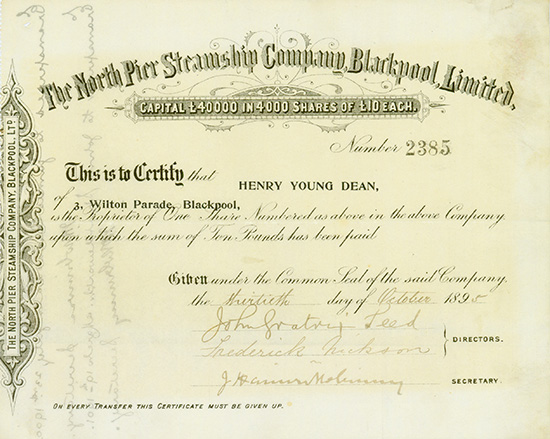 The North Pier Steamship Company, Blackpool, Limited.
CAPITAL £40000 IN 4000 SHARES OF £10 EACH.
Number 2385
This is to Certify that HENRY YOUNG DEAN,
of 3, Wilton Parade, Blackpool,
is the Proprietor of One Share Numbered as above in the above Company
upon which the sum of Ten Pounds has been paid
Given under the Common Seal of the said Company
the thirtieth day of October 1895
John Seed
Frederick
DIRECTORS.
J
SECRETARY.
ON EVERY TRANSFER THIS CERTIFICATE MUST BE GIVEN UP.
THE NORTH PIER STEAMSHIP COMPANY, BLACKPOOL, LTD.